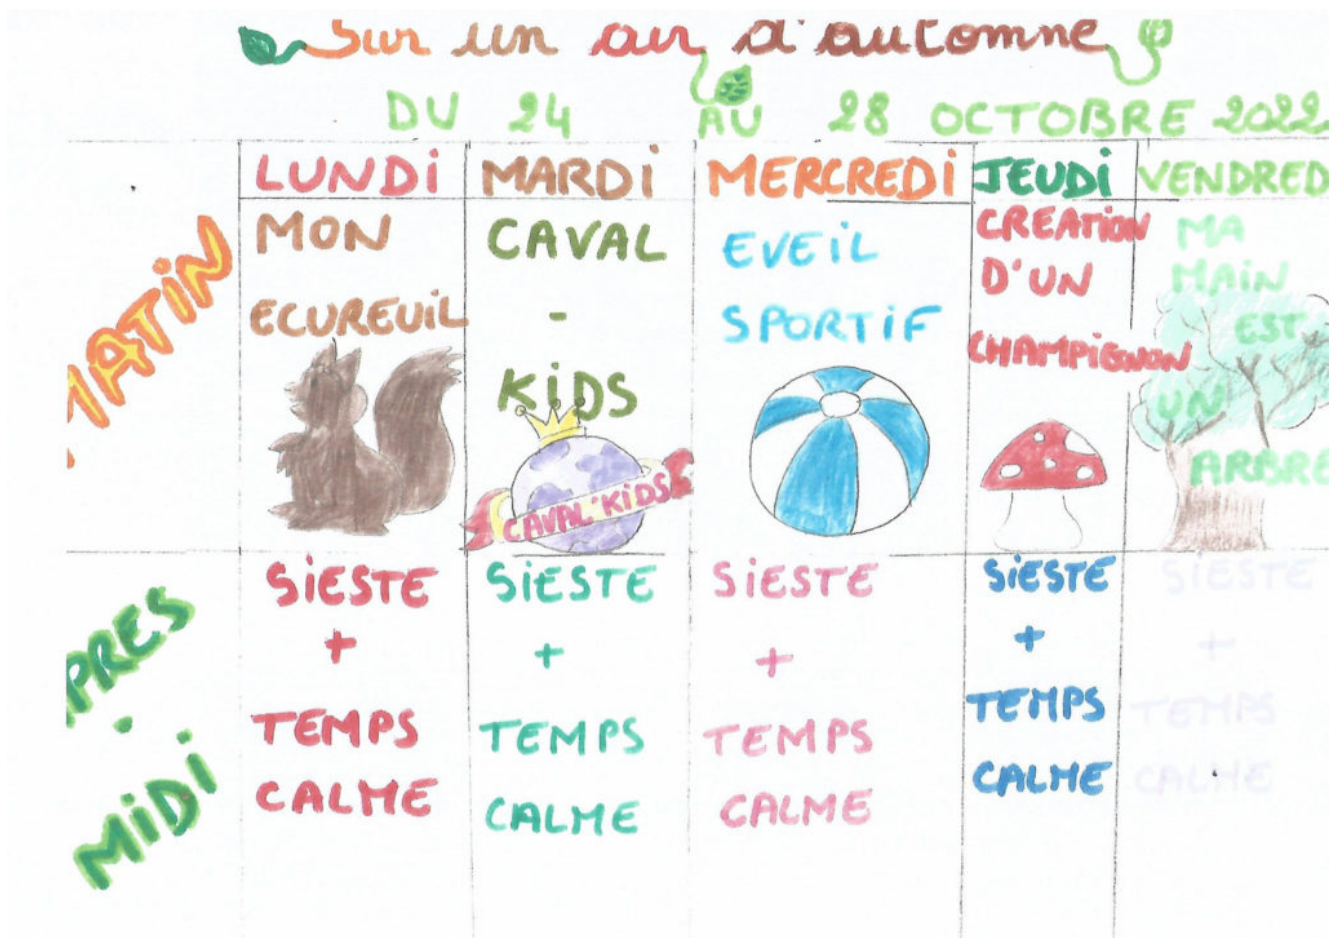 Sur un air d'automne
DU 24 AU 28 OCTOBRE 2022
LUNDi
MARDi
MERCREDi
JEUDi
VENDRED
MATiN
MON
ECUREUiL
CAVAL
-
KiDS
CAVAL'KiDS
EVEiL
SPORTiF
CREATiON
D'UN
CHAMPiGNON
MA
MAiN
EST
UN
ARBRE
PRES
-
MiDi
SiESTE
+
TEMPS
CALME
SiESTE
+
TEMPS
CALME
SiESTE
+
TEMPS
CALME
SiESTE
+
TEMPS
CALME
SiESTE
+
TEMPS
CALME